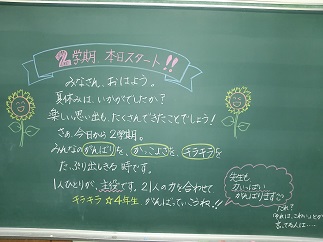 2学期、本日スタート!!
みなさん、おはよう。
夏休みは、いかがでしたか?
楽しい思い出も、たくさんできたことでしょう!
さぁ、今日から2学期。
みんなのがんばりを、かっこよさを、キラキラを
たっぷり出しきる時です。
1人ひとりが、主役です。21人の力を合わせて
キラキラ☆4年生、がんばっていこうね!!
先生も
力いっぱい
がんばります
だれ?